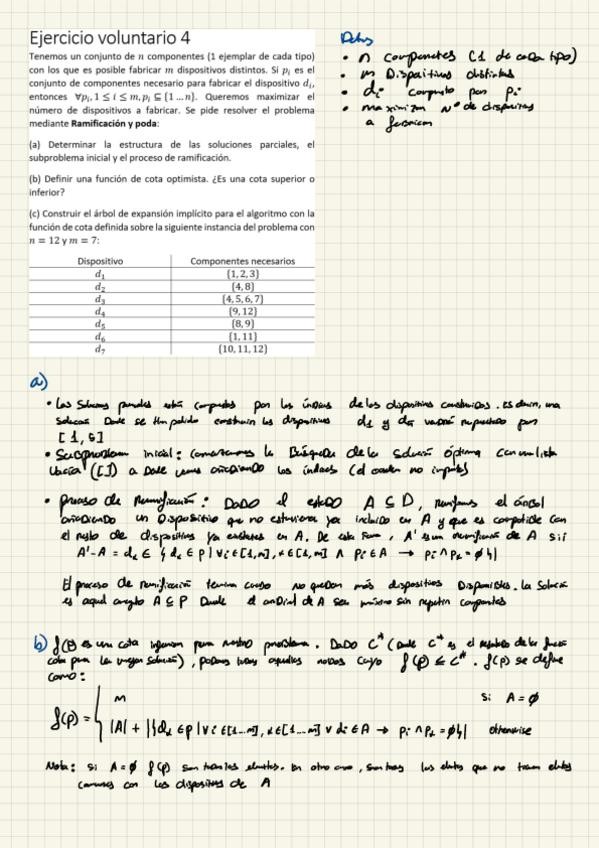 Ejercicio voluntario 4
Tenemos un conjunto de n componentes (1 ejemplar de cada tipo)
con los que es posible fabricar m dispositivos distintos. Si pᵢ es el
conjunto de componentes necesario para fabricar el dispositivo dᵢ,
entonces ∀pᵢ, 1 ≤ i ≤ m, pᵢ ⊆ {1 … n}. Queremos maximizar el
número de dispositivos a fabricar. Se pide resolver el problema
mediante Ramificación y poda:
(a) Determinar la estructura de las soluciones parciales, el
subproblema inicial y el proceso de ramificación.
(b) Definir una función de cota optimista. ¿Es una cota superior o
inferior?
(c) Construir el árbol de expansión implícito para el algoritmo con la
función de cota definida sobre la siguiente instancia del problema con
n = 12 y m = 7:
Dispositivo Componentes necesarios
d₁ {1, 2, 3}
d₂ {4, 8}
d₃ {4, 5, 6, 7}
d₄ {9, 12}
d₅ {8, 9}
d₆ {1, 11}
d₇ {10, 11, 12}
Datos
• n componetes (1 de cada tipo)
• m Dispositivos distintos
• dᵢ compuesto por pᵢ
• maximizar Nº de dispositivos
a fabricar
a)
• Las Soluciones parciales están compuestas por los índices de los dispositivos construidos. Es decir, una
solución Donde se han podido construir los dispositivos d₁ y d₅ vendrá repuesta por
[1, 5]
• Subproblema inicial: comenzamos la Búsqueda de la Solución óptima con una lista
Vacía ([]) a Donde vamos añadiendo los índices (el orden no importa)
• proceso de Ramificación: DADO el estado A ⊆ D, ramificamos el árbol
añadiendo un Dispositivo que no estuviera ya incluido en A y que es compatible con
el resto de dispositivos ya existentes en A. De esta forma, A' es una ramificación de A sii
A'-A = dₖ ∈ { dₖ ∈ p | ∀i ∈ [1,m], k ∈ [1,m] ∧ pᵢ ∈ A → pᵢ ∩ pₖ = ∅ }|
El proceso de ramificación termina cuando no quedan más dispositivos Disponibles. La Solución
es aquel conjunto A ⊆ P Donde el cardinal de A sea máximo sin repetir componentes
b) f(p) es una cota inferior para nuestro problema. DADO C* (donde C* es el resultado de la función
cota para la mejor solución), podemos podar aquellos nodos cuyo f(p) ≤ C*. f(p) se define
como:
f(p) = { m si A = ∅
|A| + |{dₖ ∈ p | ∀i ∈ [1...m], k ∈ [1...m] ∨ dᵢ ∈ A → pᵢ ∩ pₖ = ∅}| otherwise
Nota: si A = ∅ f(p) son todos los elementos. En otro caso, son todos los elementos que no tienen elementos
comunes con los dispositivos de A